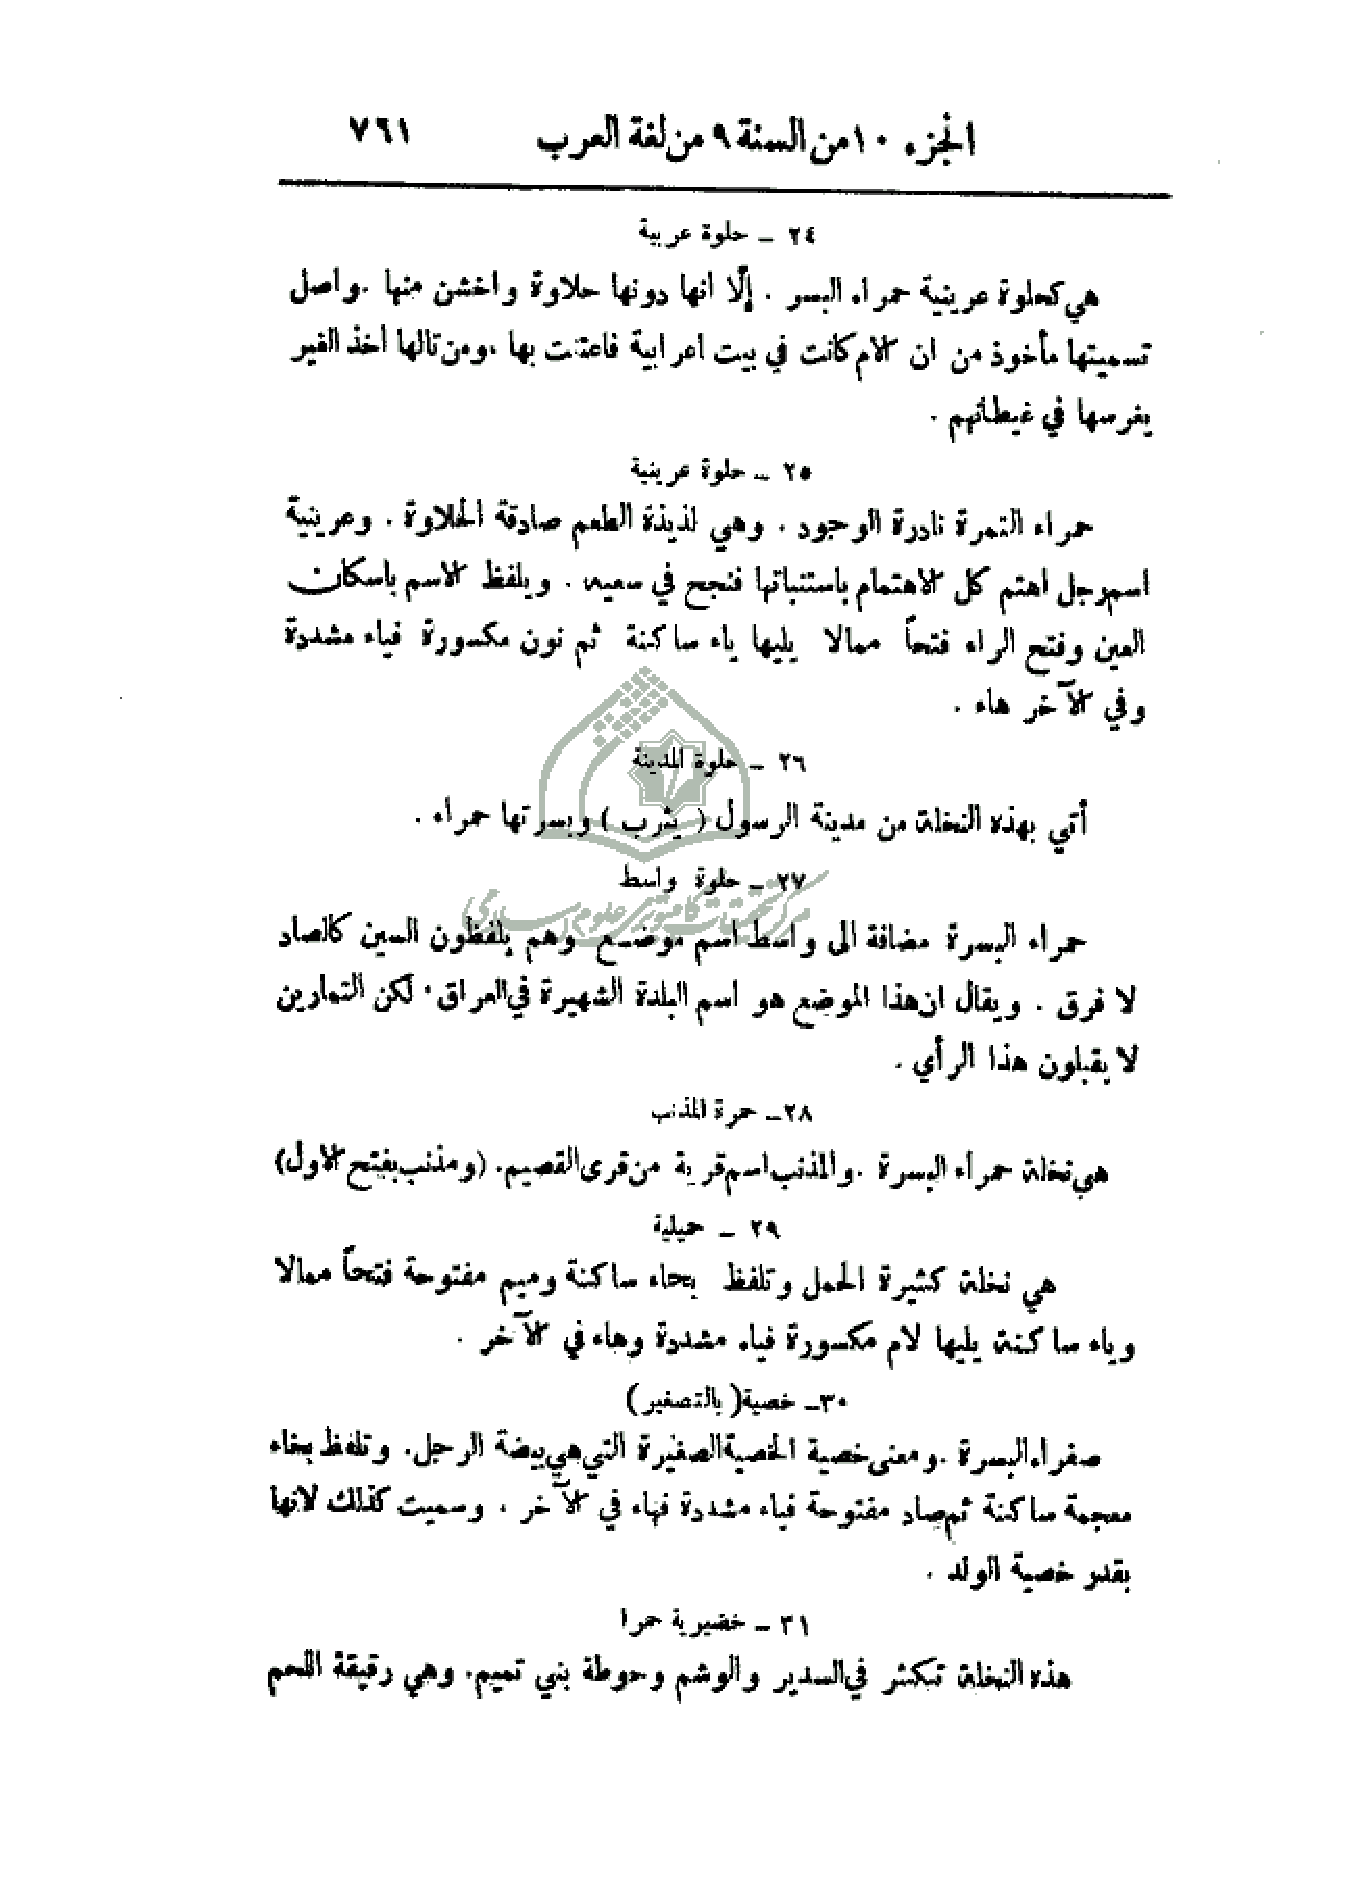 الجزء ١٠ من السنة ٩ من لغة العرب ٧٦١
٢٤ – حلوة عربية
هي كحلوة عرينية حمراء البسر . إلّا انها دونها حلاوة واخشن منها .واصل
تسميتها مأخوذ من ان الام كانت في بيت اعرابية فاعتنت بها ،ومن تالها أخذ الغير
يغرسها في غيطانهم .
٢٥ – حلوة عرينية
حمراء التمرة نادرة الوجود . وهي لذيذة الطعم صادقة الحلاوة . وعرينية
اسم رجل اهتم كل الاهتمام باستنباتها فنجح في سعيه . ويلفظ الاسم باسكان
العين وفتح الراء فتحاً ممالا يليها ياء ساكنة ثم نون مكسورة فياء مشددة
وفي الآخر هاء .
٢٦ – حلوة المدينة
أتي بهذه النخلة من مدينة الرسول ( يثرب ) وبسرتها حمراء .
٢٧ – حلوة واسط
حمراء البسرة مضافة الى واسط اسم موضع وهم يلفظون السين كالصاد
لا فرق . ويقال ان هذا الموضع هو اسم البلدة الشهيرة في العراق ٠ لكن التمارين
لا يقبلون هذا الرأي .
٢٨– حمرة المذنب
هي نخلة حمراء البسرة .والمذنب اسم قرية من قرى القصيم. (ومذنب بفتح الاول)
٢٩ – حميلية
هي نخلة كثيرة الحمل وتلفظ بحاء ساكنة وميم مفتوحة فتحاً ممالا
وياء ساكنة يليها لام مكسورة فياء مشددة وهاء في الآخر .
٣٠– خصية( بالتصغير )
صفراء البسرة .ومعنى خصية الخصية الصغيرة التي هي بيضة الرجل. وتلفظ بخاء
معجمة ساكنة ثم صاد مفتوحة فياء مشددة فهاء في الآخر . وسميت كذلك لانها
بقدر خصية الولد .
٣١ – خضيرية حمرا
هذه النخلة تكثر في السدير والوشم وحوطة بني تميم. وهي رقيقة اللحم
مركز تحقيقات كامپيوتري علوم اسلامي